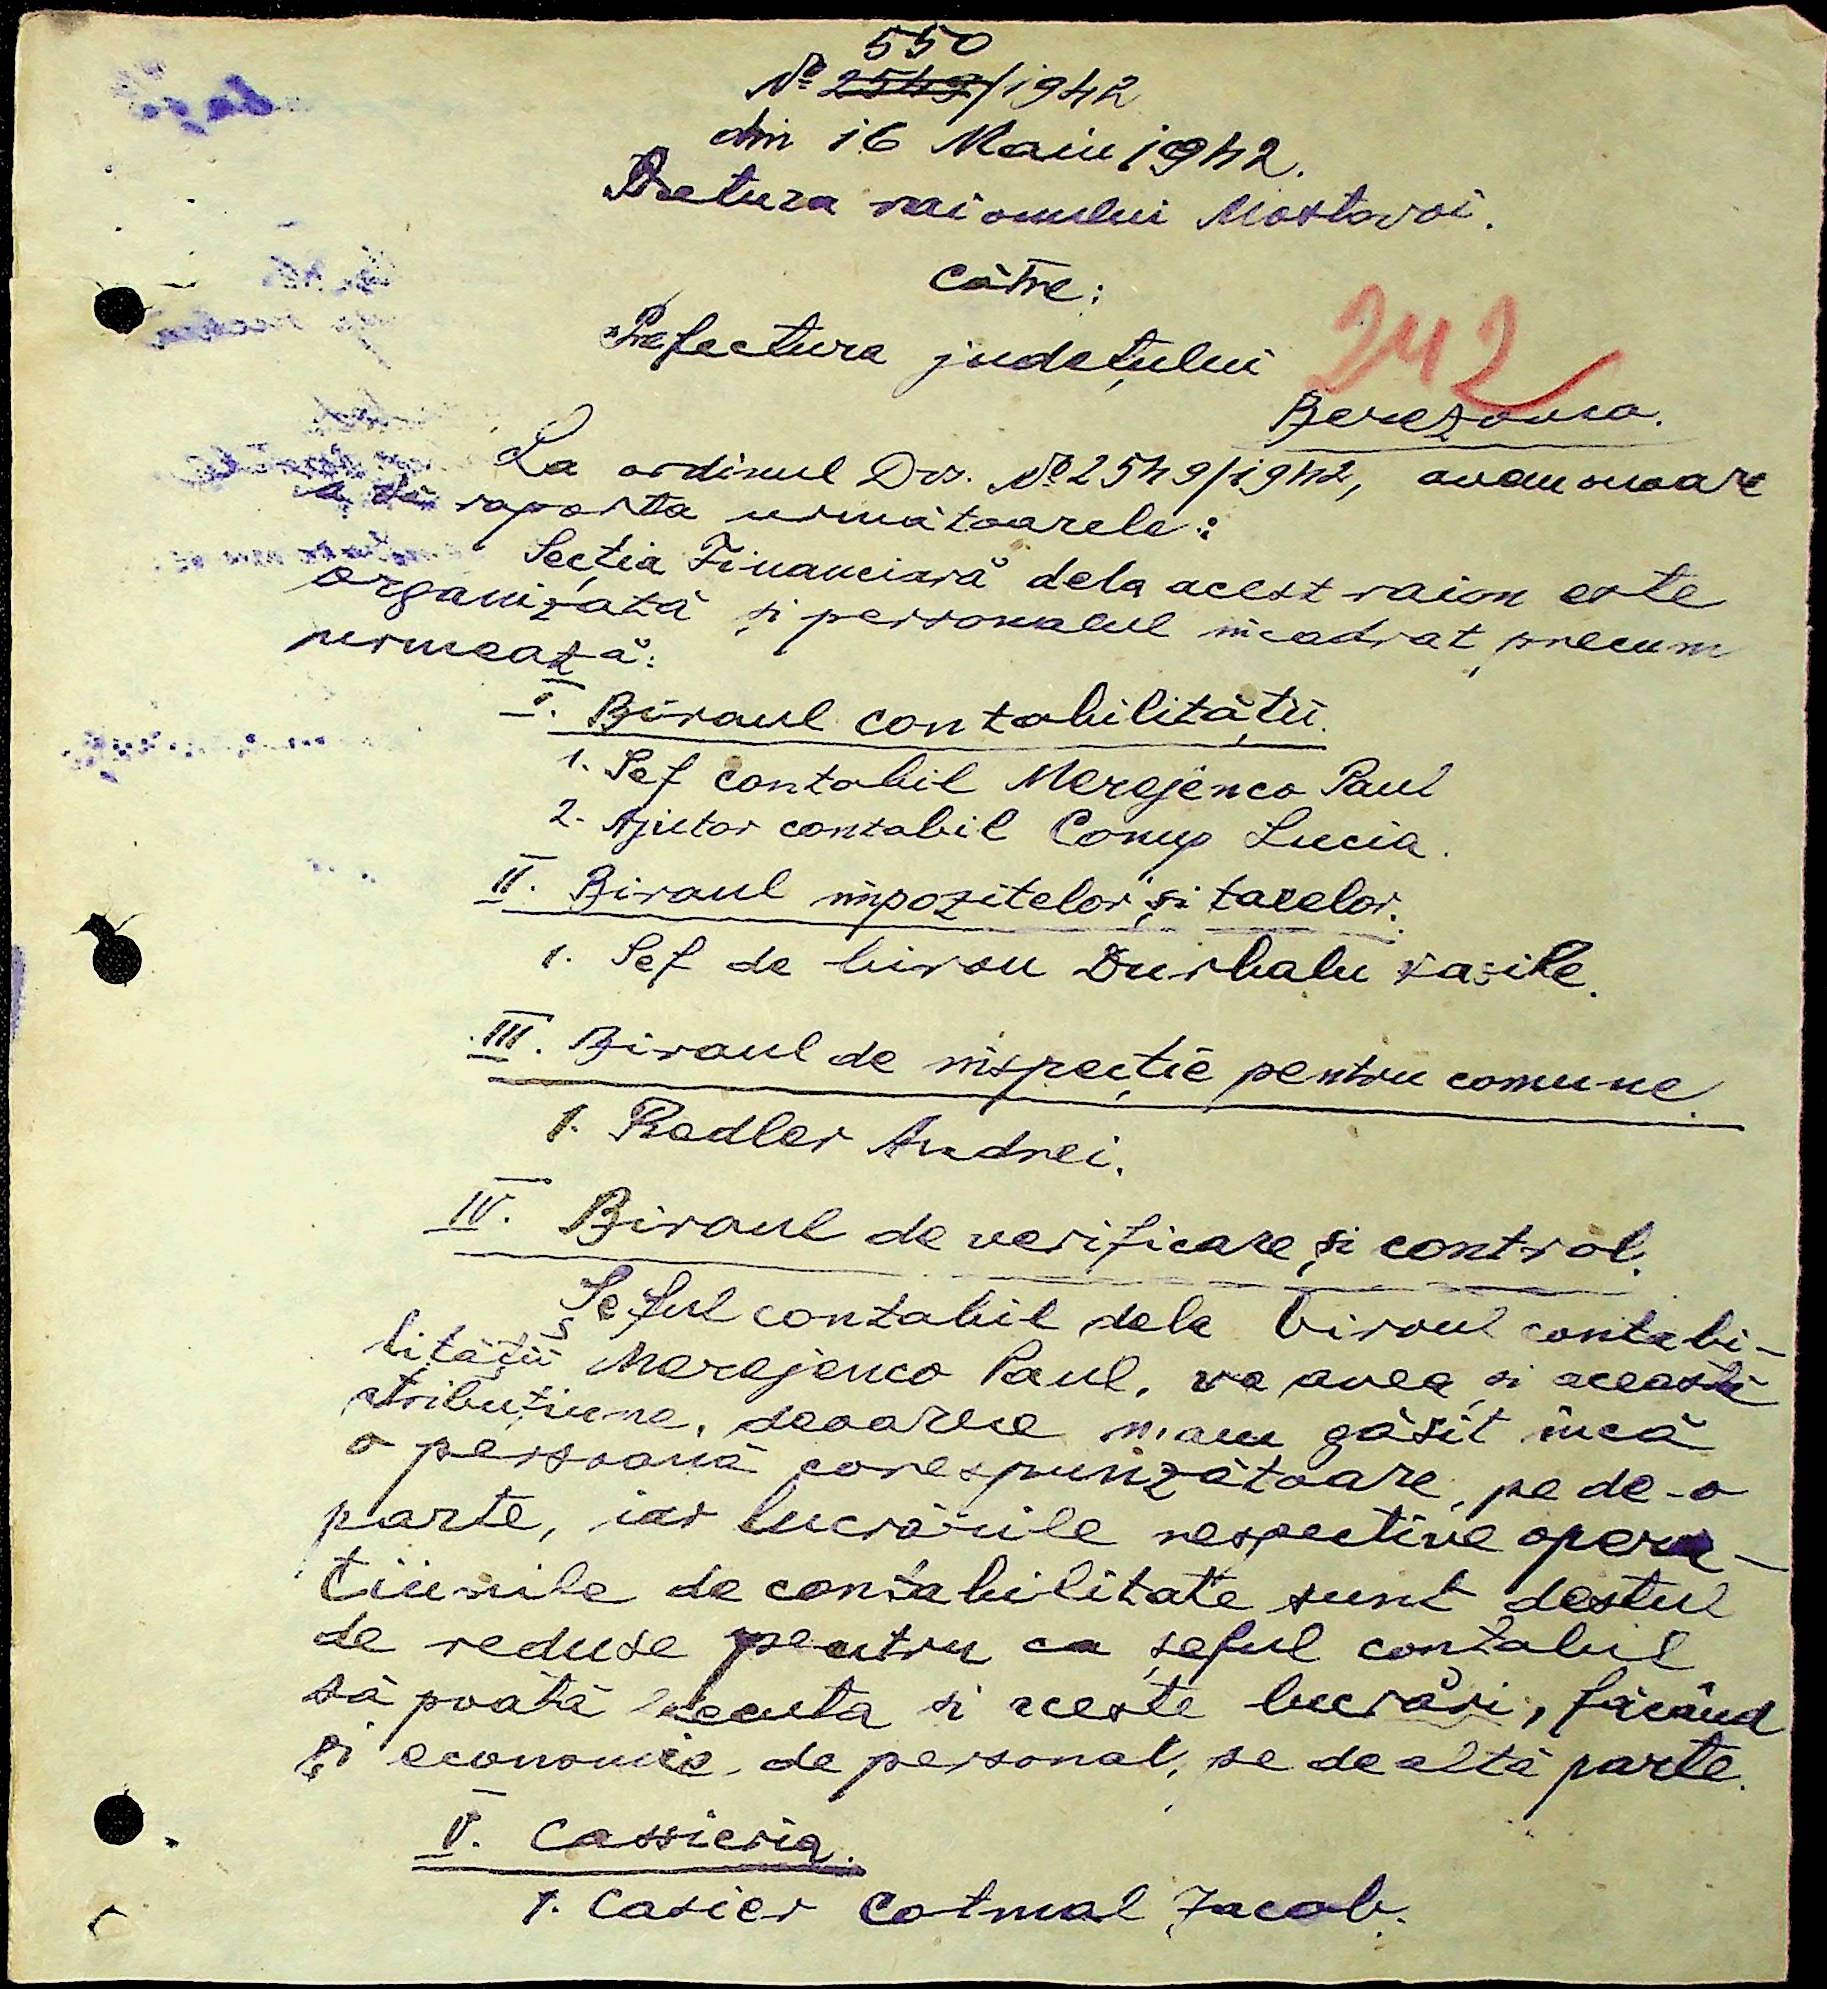 550
No 2549/1942
din 16 Maiu 1942.
Pretura raionului Mostovoi.
Către:
Prefectura județului
242
Berezovca.
La ordinul Dvs. No 2549/1942, avem onoare
a vă raporta următoarele:
Secția Financiară dela acest raion este
organizată și personalul încadrat, precum
urmează:
I. Biroul contabilității.
1. Șef contabil Merejenco Paul
2. Ajutor contabil Conup Lucia.
II. Biroul impozitelor și taxelor.
1. Șef de birou Durbalu Vasile.
III. Biroul de inspecție pentru comune.
1. Redler Andrei.
IV. Biroul de verificare și control.
Șeful contabil dela biroul contabi-
lității Merejenco Paul, va avea și această
atribuțiune, deoarece n'am găsit încă
o persoană corespunzătoare, pe de-o
parte, iar lucrările respective opera-
țiunile de contabilitate sunt destul
de reduse pentru ca șeful contabil
să poată executa și aceste lucrări, făcând
și economie de personal, pe de altă parte.
V. Cassieria.
1. Casier Cotmal Jacob.